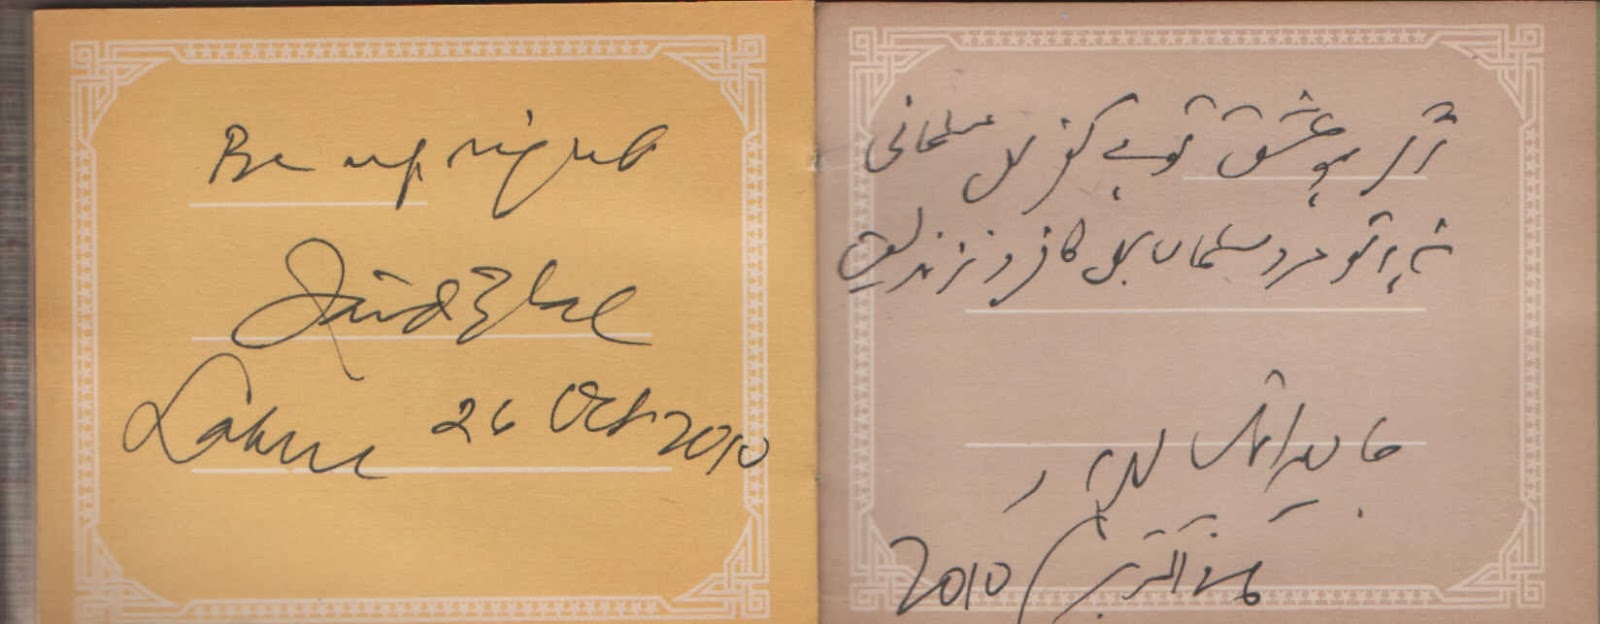 Be upright
Javid Iqbal
Lahore 26 Oct 2010
اگر ہو عشق تو ہے کفر بھی مسلمانی
نہ ہو تو مرد مسلماں بھی کافر و زندیق
جاوید اقبال لاہور
۲۶ اکتوبر 2010